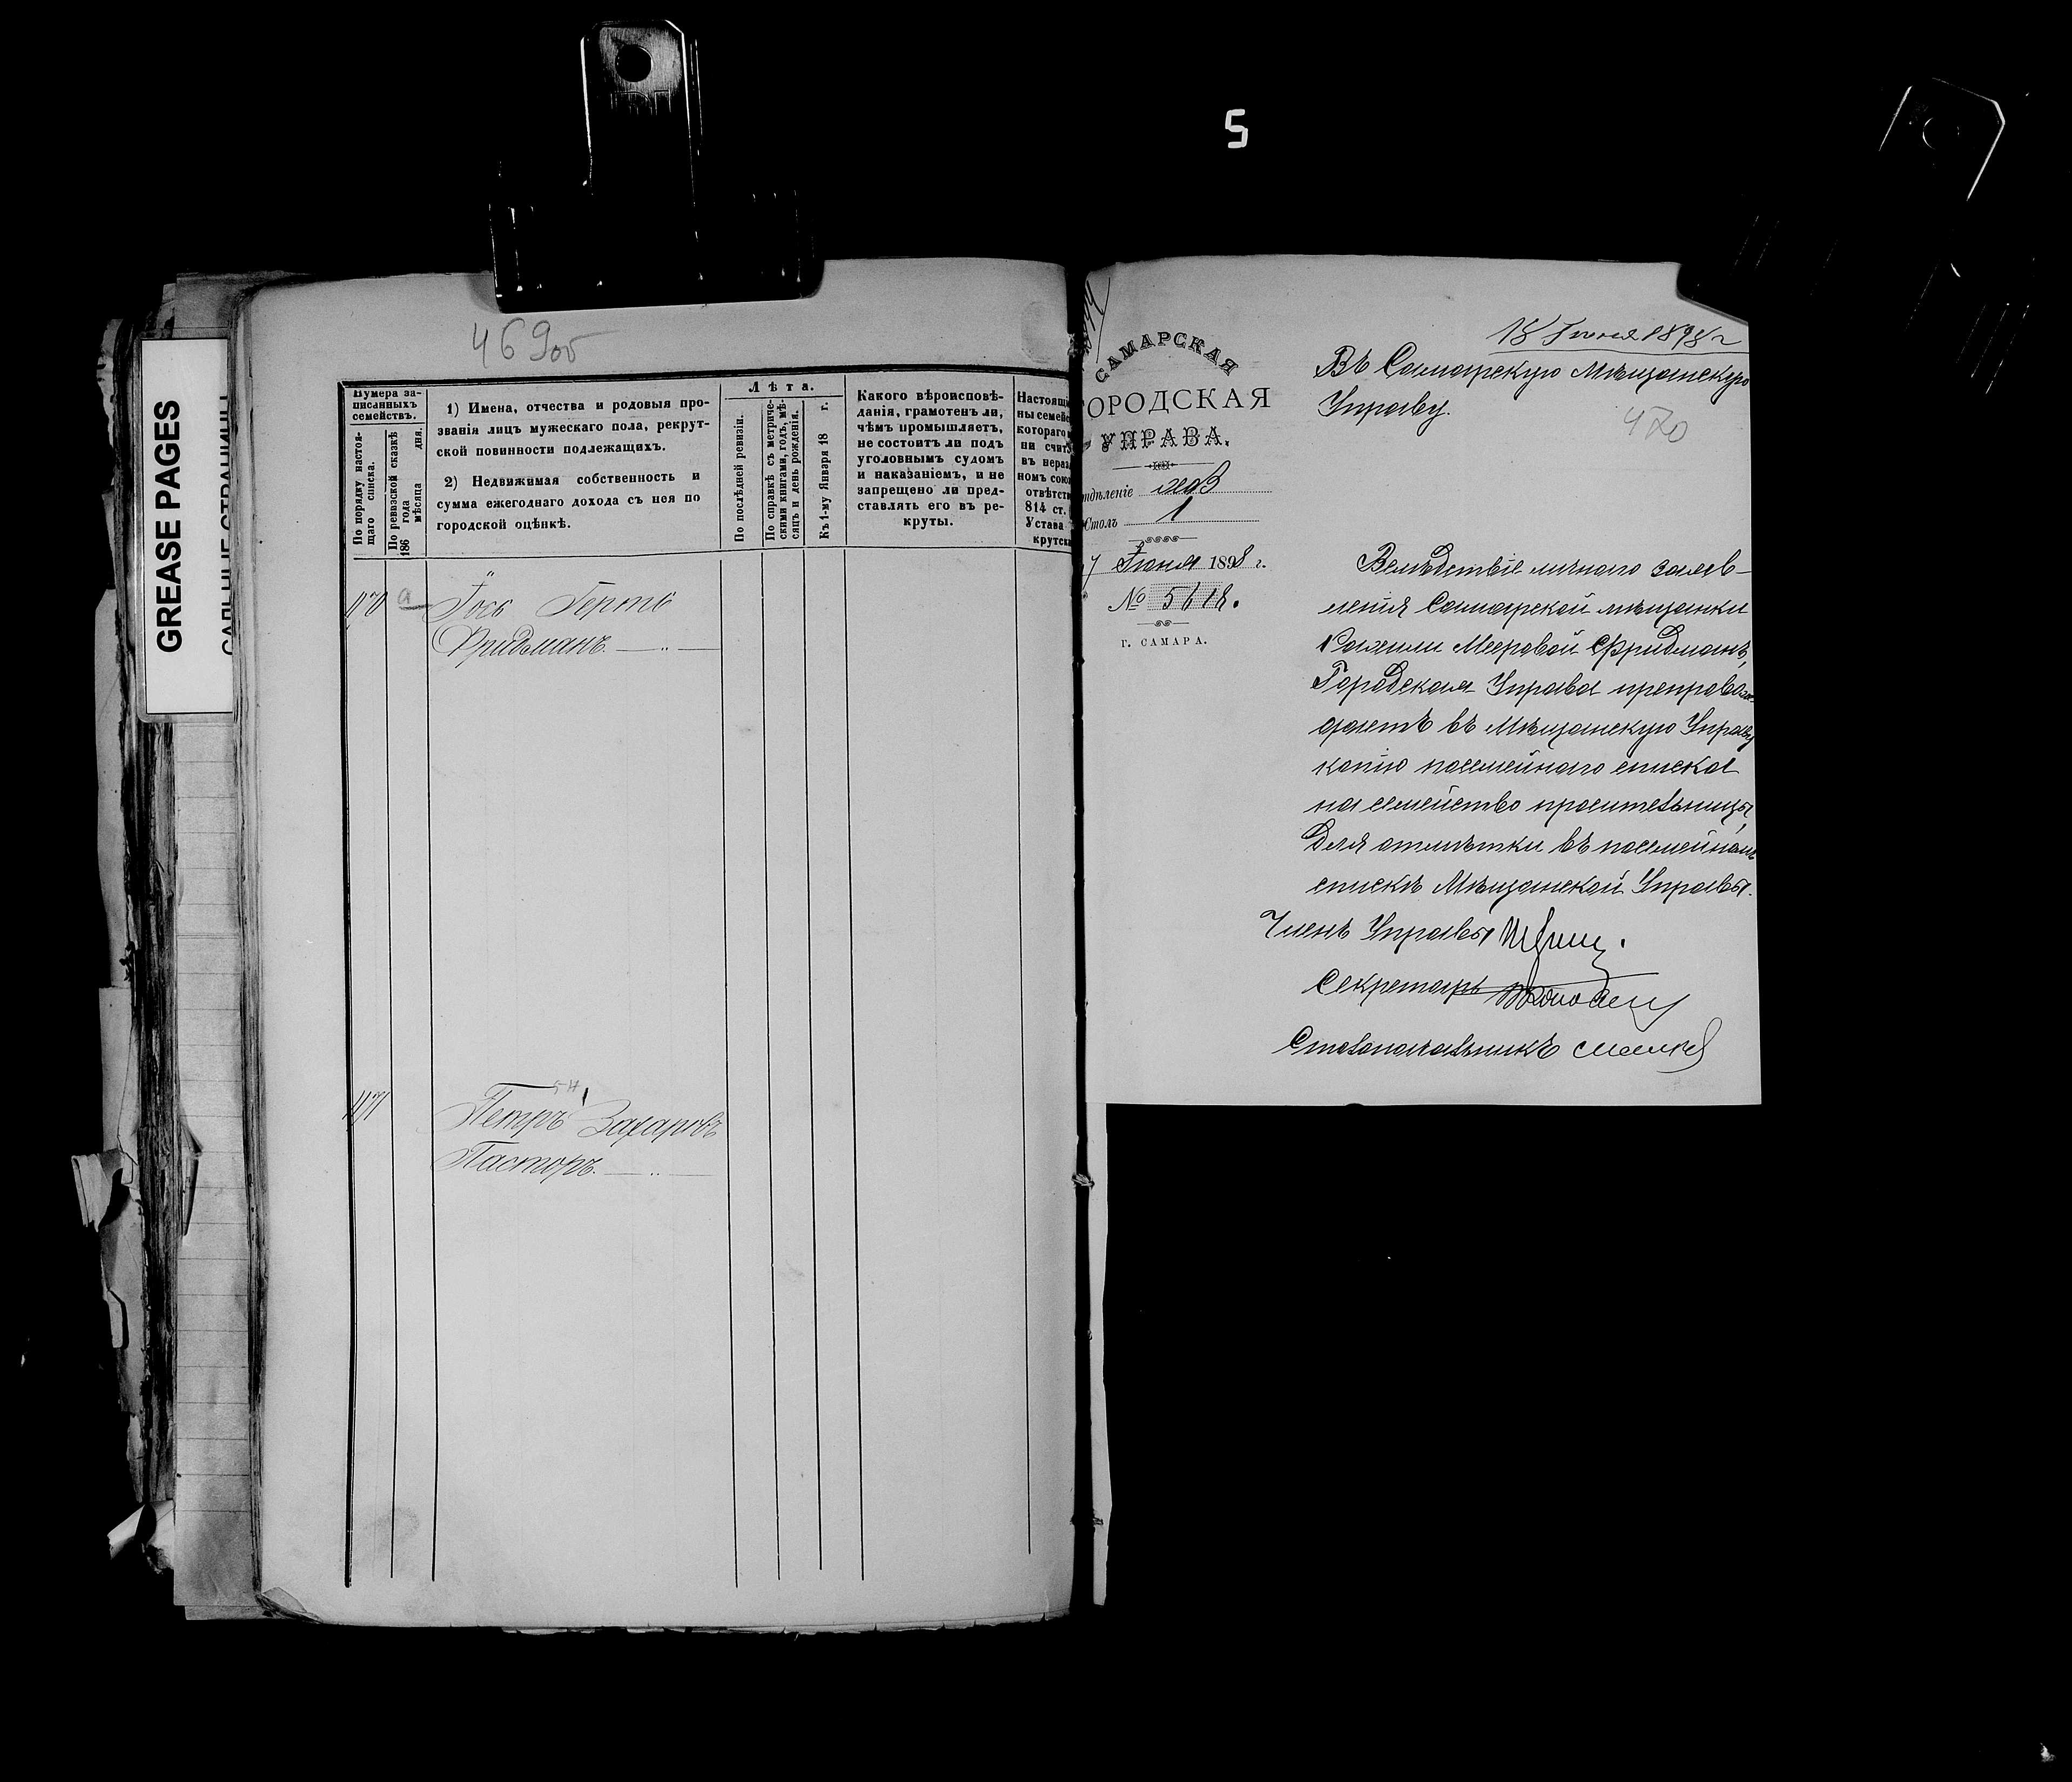 5
GREASE PAGES
469об
Нумера за-
писанныхъ
семействъ.
По порядку настоя-
щаго списка.
По ревизской сказкѣ
186 года мѣсяца дня.
1) Имена, отчества и родовыя про-
званія лицъ мужескаго пола, рекрут-
ской повинности подлежащихъ.
2) Недвижимая собственность и
сумма ежегоднаго дохода съ нея по
городской оцѣнкѣ.
Лѣта.
По послѣдней ревизіи.
По справкѣ съ метриче-
скими книгами, годъ, мѣ-
сяцъ и день рожденія.
Къ 1-му Января 18 г.
Какого вѣроисповѣ-
данія, грамотенъ ли,
чѣмъ промышляетъ,
не состоитъ ли подъ
уголовнымъ судомъ
и наказаніемъ, и не
запрещено ли пред-
ставлять его въ ре-
круты.
Настоящі
ны семейс
котораго
ни счит
въ нераз
номъ сою
отвѣтст
814 ст.
Устава
крутск
Іось Герть
Фридманъ.
Петръ Захаровъ
Пасторъ.
САМАРСКАЯ
ОРОДСКАЯ
УПРАВА.
тдѣленіе
Столъ 1
7 Іюня 1898 г.
№ 5618.
г. САМАРА.
18 Іюня 1898 г
Въ Самарскую Мѣщанскую
Управу.
470
Вслѣдствіе личнаго заяв-
ленія Самарской мѣщанки
Рахили Мееровой Фридманъ,
Городская Управа препровож-
даетъ въ Мѣщанскую Управу
копію посемейнаго списка
на семейство просительницы,
для отмѣтки въ посемейномъ
спискѣ Мѣщанской Управы.
Членъ Управы
Секретарь
Столоначальникъ